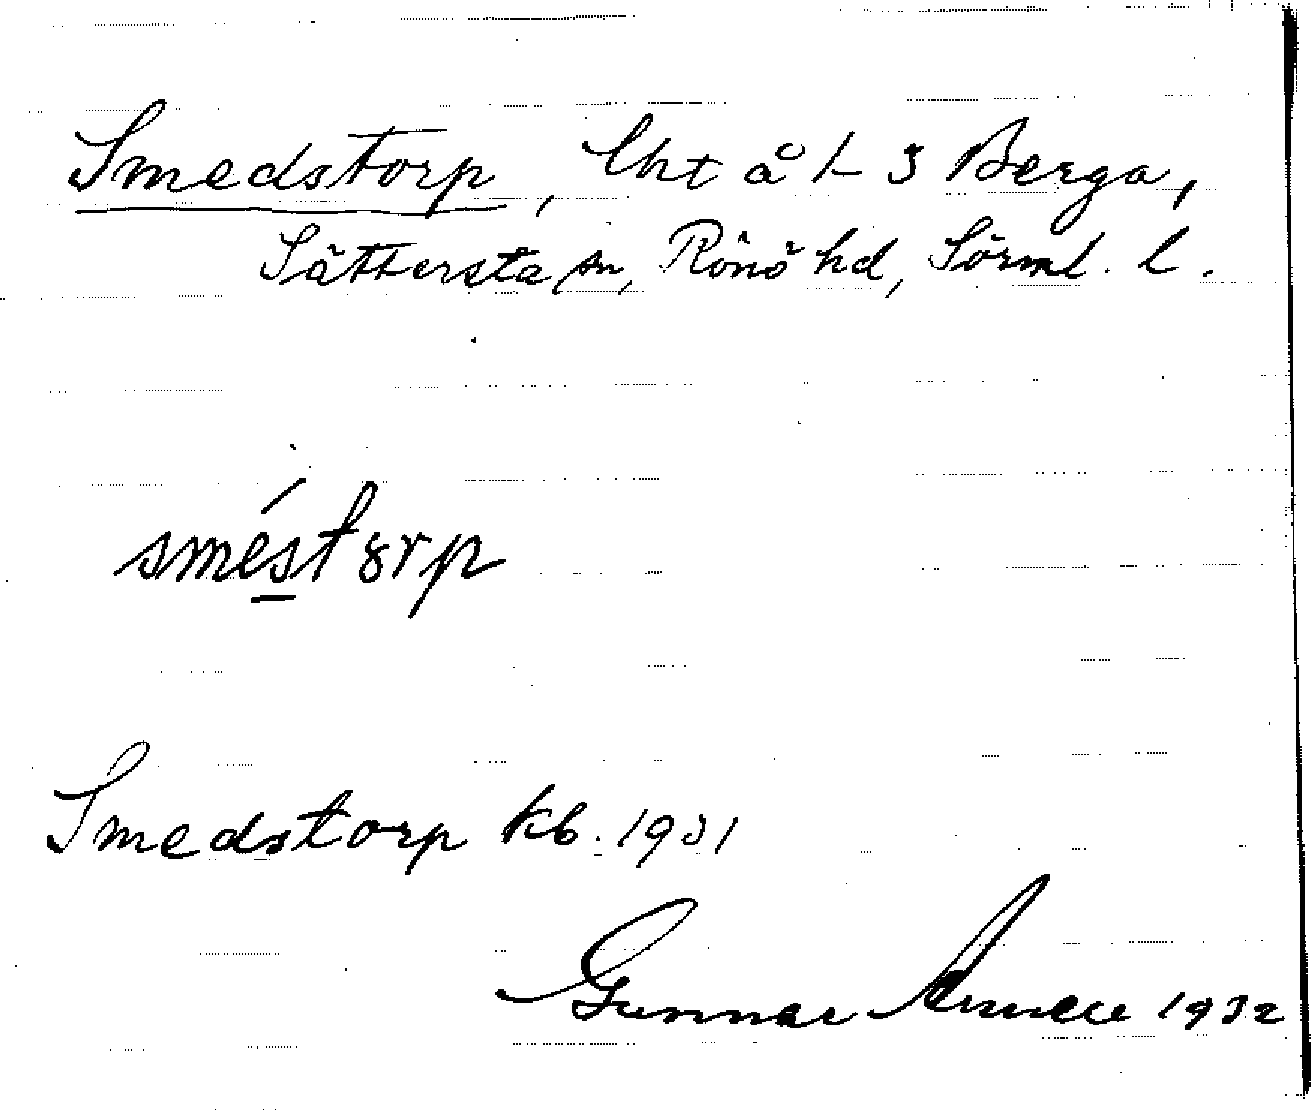 Smedstorp, lht å 1 S Berga,
Sättersta sn, Rönö hd, Sörml. l.
sméstɤrp
Smedstorp kb. 1931
Gunnar 1932